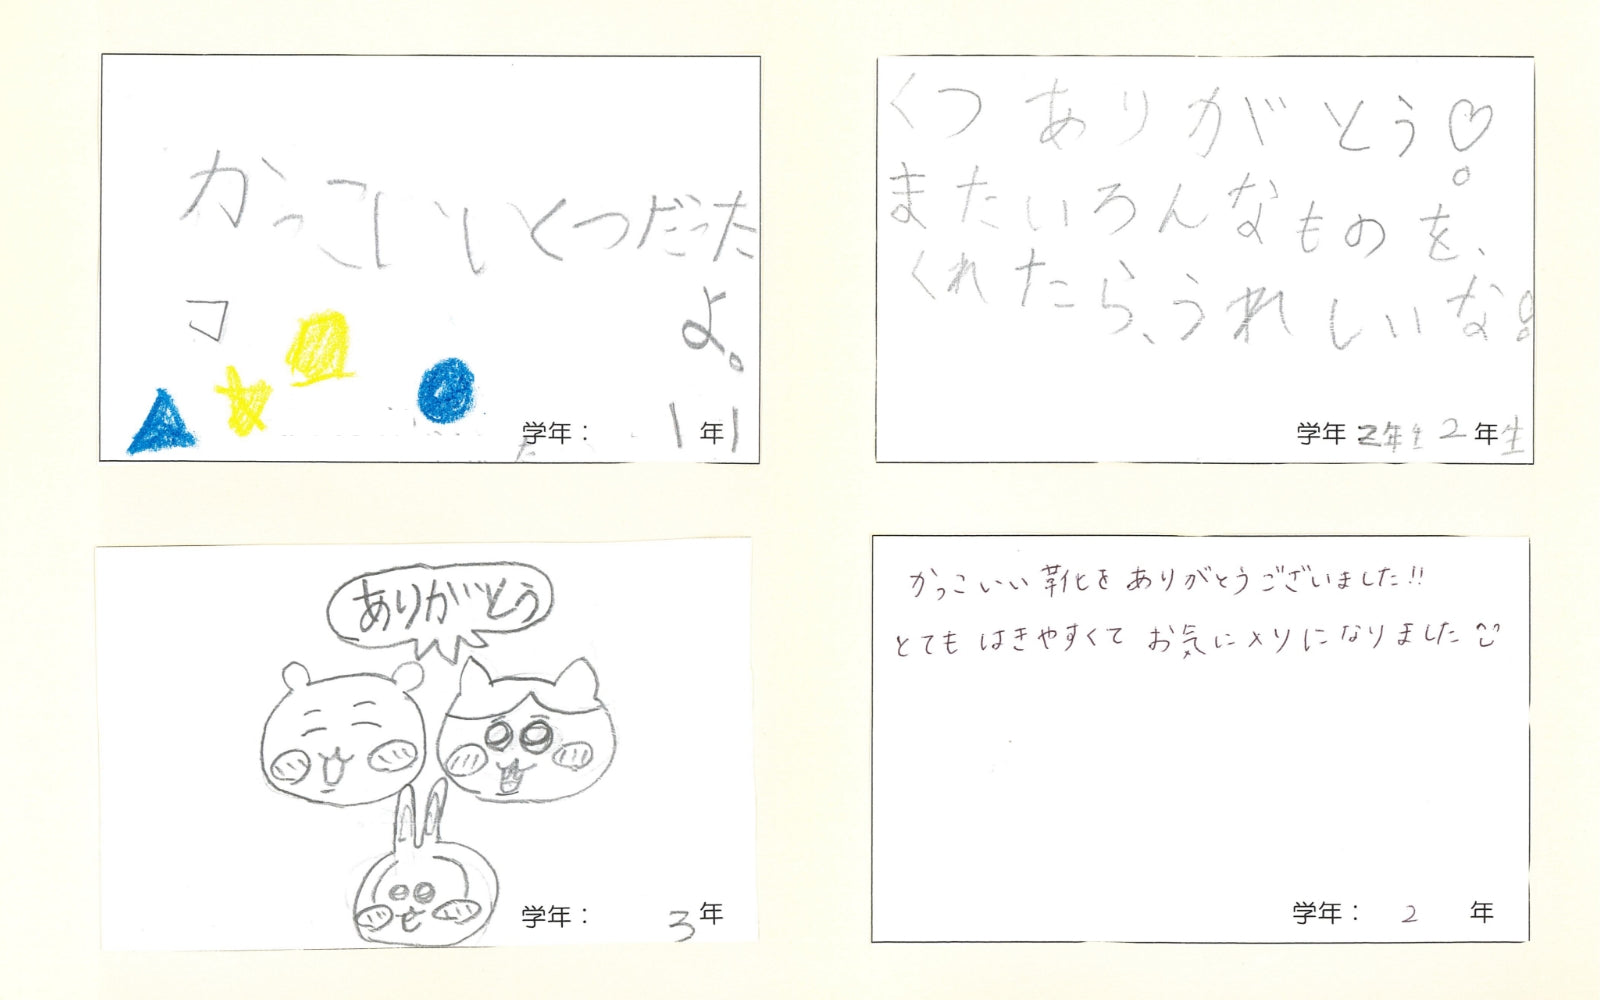 かっこいいくつだった
よ。
学年： 1 年
くつ ありがとう♡
またいろんなものを、
くれたら、うれしいな
学年 2年生 2 年生
ありがとう
学年： 3 年
かっこいい靴をありがとうございました!!
とても はきやすくて お気に入りになりました
学年： 2 年